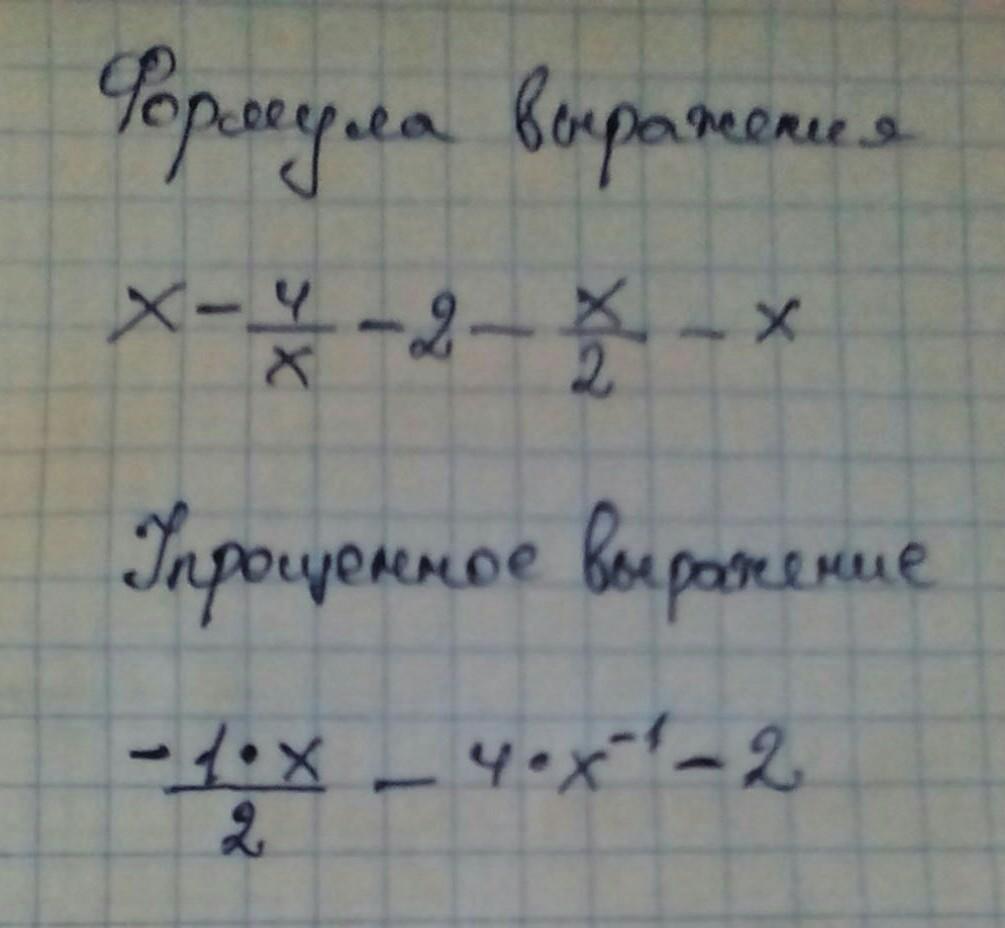 Формула выражения
x - 4/x - 2 - x/2 - x
Упрощенное выражение
-1·x/2 - 4·x⁻¹ - 2